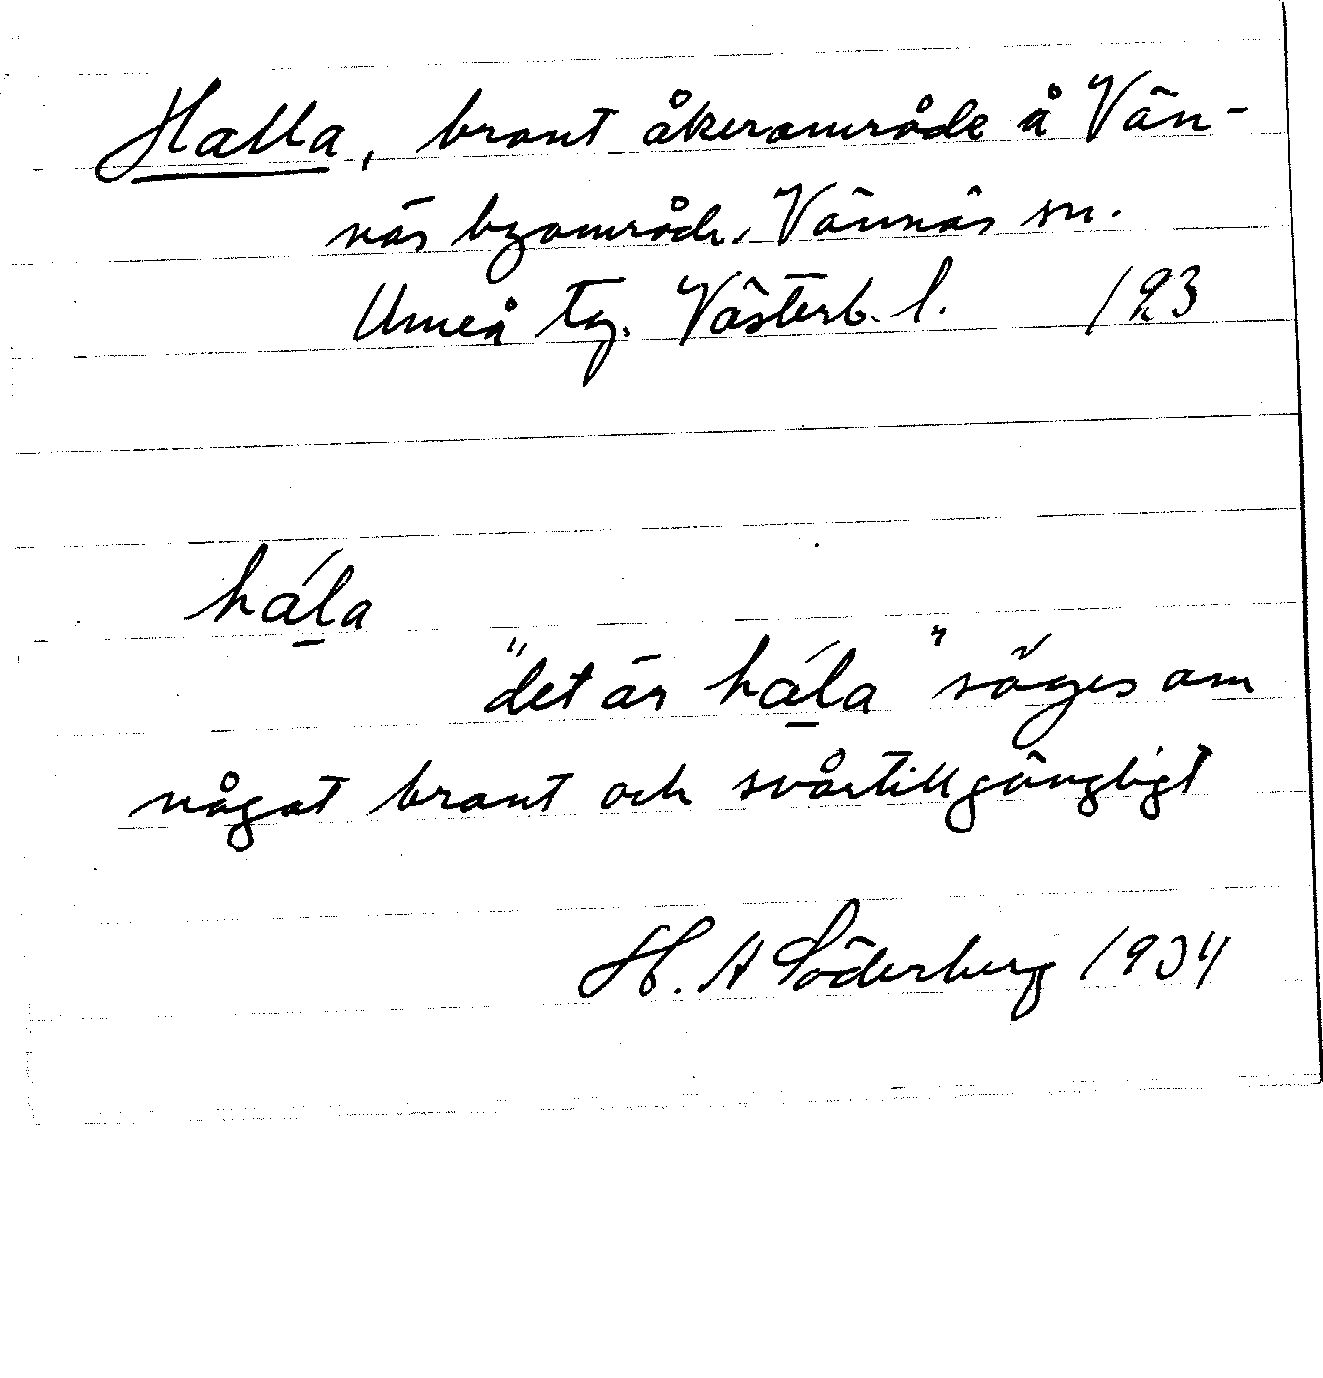 Halla, brant åkerområde å Vän-
näs byområde, Vännäs sn.
Umeå tg. Västerb. l. 123
há̱la
"det är há̱la" säges om
något brant och svårtillgängligt
H. A Söderberg 1934